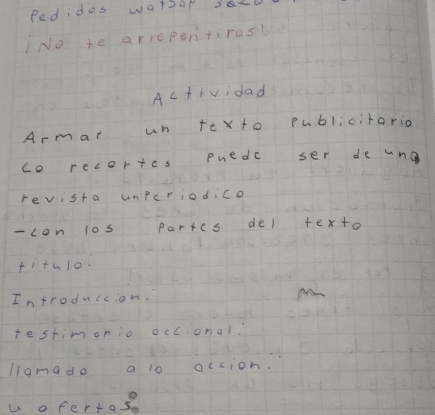 Pedidos watsap
¡No te arrepentiras!
Actividad
Armar un texto publicitario
co recortes puede ser de una
revista unperiodico
-con los partes del texto
titulo.
Introduccion.
testimonio occional.
llamado a lo accion.
u ofertas.